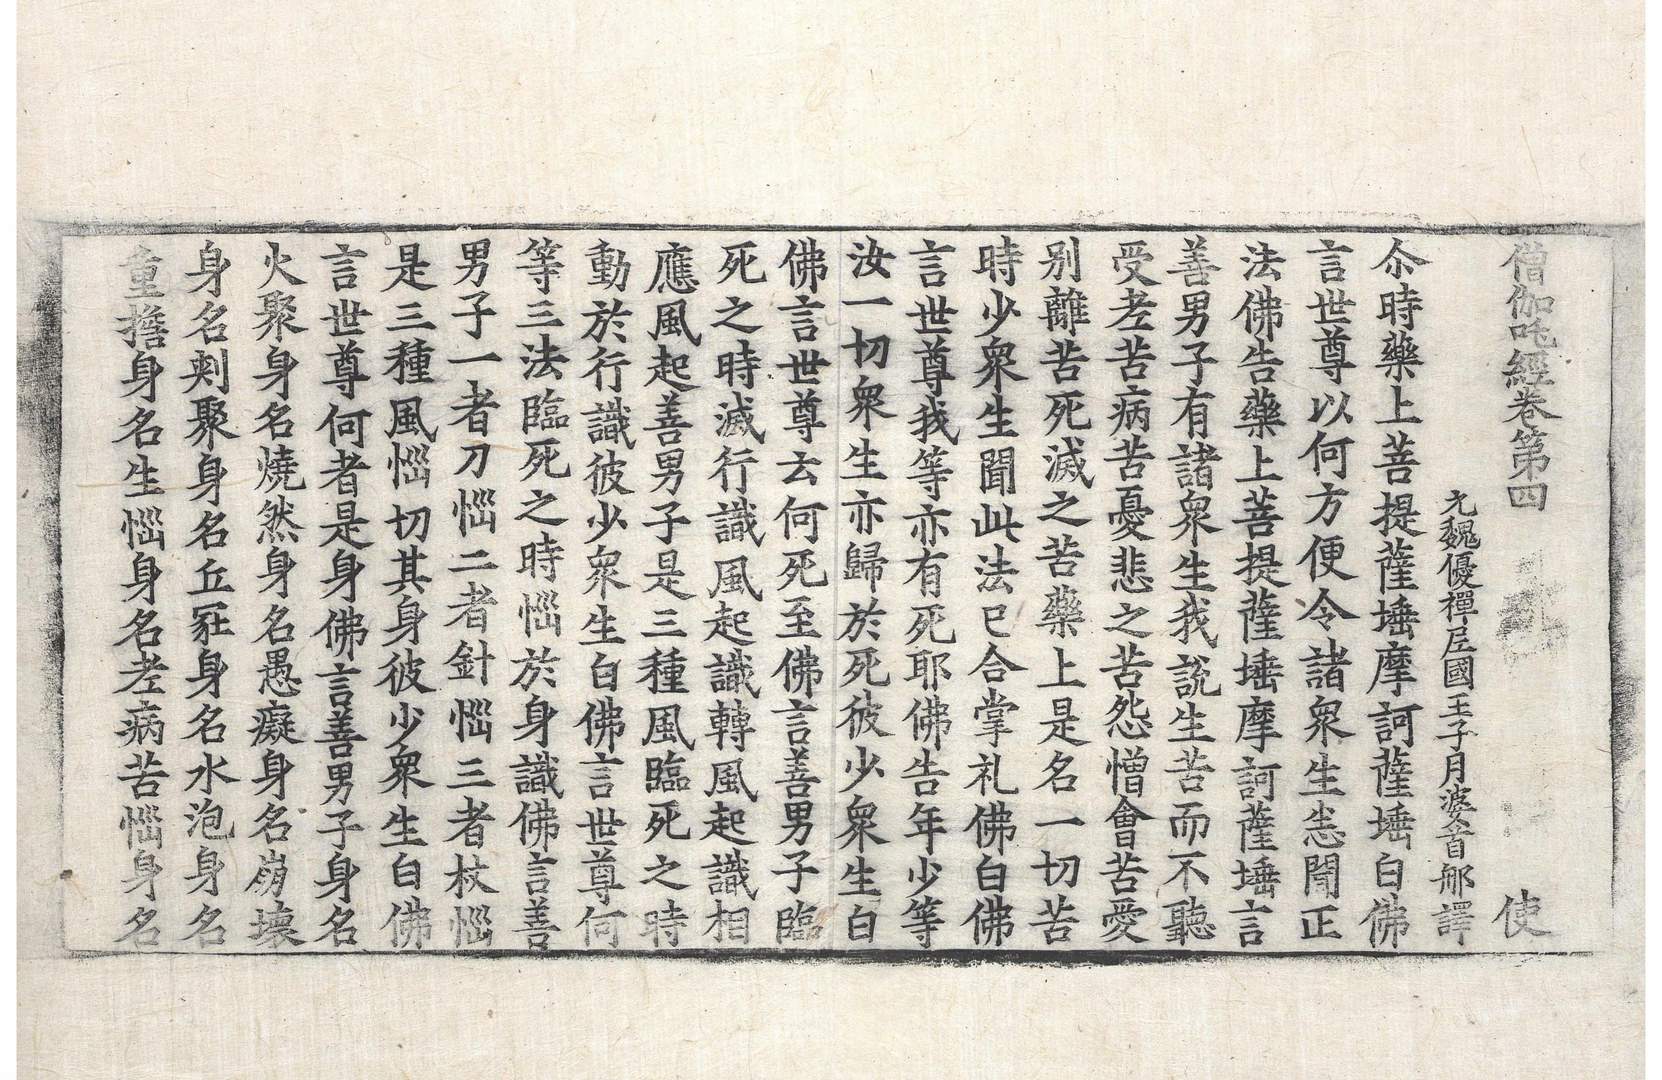 僧伽吒經卷第四 使
元魏優禪尼國王子月婆首那譯
尒時藥上菩提薩埵摩訶薩埵白佛
言世尊以何方便令諸衆生悉聞正
法佛告藥上菩提薩埵摩訶薩埵言
善男子有諸衆生我說生苦而不聽
受老苦病苦憂悲之苦怨憎會苦愛
别離苦死滅之苦藥上是名一切苦
時少衆生聞此法已合掌礼佛白佛
言世尊我等亦有死耶佛告年少等
汝一切衆生亦歸於死彼少衆生白
佛言世尊云何死至佛言善男子臨
死之時滅行識風起識轉風起識相
應風起善男子是三種風臨死之時
動於行識彼少衆生白佛言世尊何
等三法臨死之時惱於身識佛言善
男子一者刀惱二者針惱三者杖惱
是三種風惱切其身彼少衆生白佛
言世尊何者是身佛言善男子身名
火聚身名燒然身名愚癡身名崩壞
身名刾聚身名丘冢身名水泡身名
重擔身名生惱身名老病苦惱身名